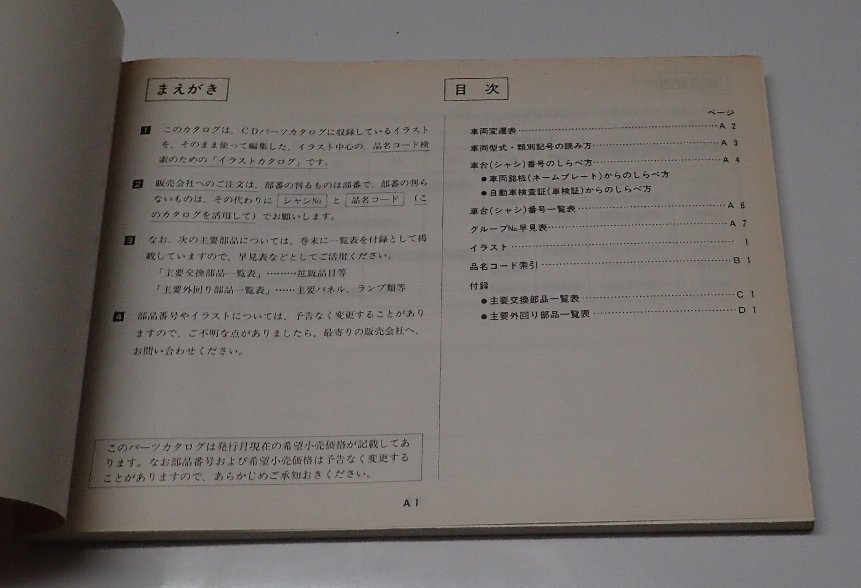 まえがき
1 このカタログは、CDパーツカタログに収録しているイラスト
を、そのまま使って編集した、イラスト中心の、品名コード検
索のための「イラストカタログ」です。
2 販売会社へのご注文は、部番の判るものは部番で、部番の判ら
ないものは、その代わりに シャシNo. と 品名コード (こ
のカタログを活用して)でお願いします。
3 なお、次の主要部品については、巻末に一覧表を付録として掲
載していますので、早見表などとしてご活用ください。
「主要交換部品一覧表」………拡販品目等
「主要外回り部品一覧表」……主要パネル、ランプ類等
4 部品番号やイラストについては、予告なく変更することがあり
ますので、ご不明な点がありましたら、最寄りの販売会社へ、
お問い合わせください。
このパーツカタログは発行月現在の希望小売価格が記載してあ
ります。なお部品番号および希望小売価格は予告なく変更する
ことがありますので、あらかじめご承知おきください。
目次
ページ
車両変遷表…A 2
車両型式・類別記号の読み方…A 3
車台(シャシ)番号のしらべ方…A 4
●車両銘板(ネームプレート)からのしらべ方
●自動車検査証(車検証)からのしらべ方
車台(シャシ)番号一覧表…A 6
グループNo.早見表…A 7
イラスト…1
品名コード索引…B 1
付録
●主要交換部品一覧表…C 1
●主要外回り部品一覧表…D 1
A 1